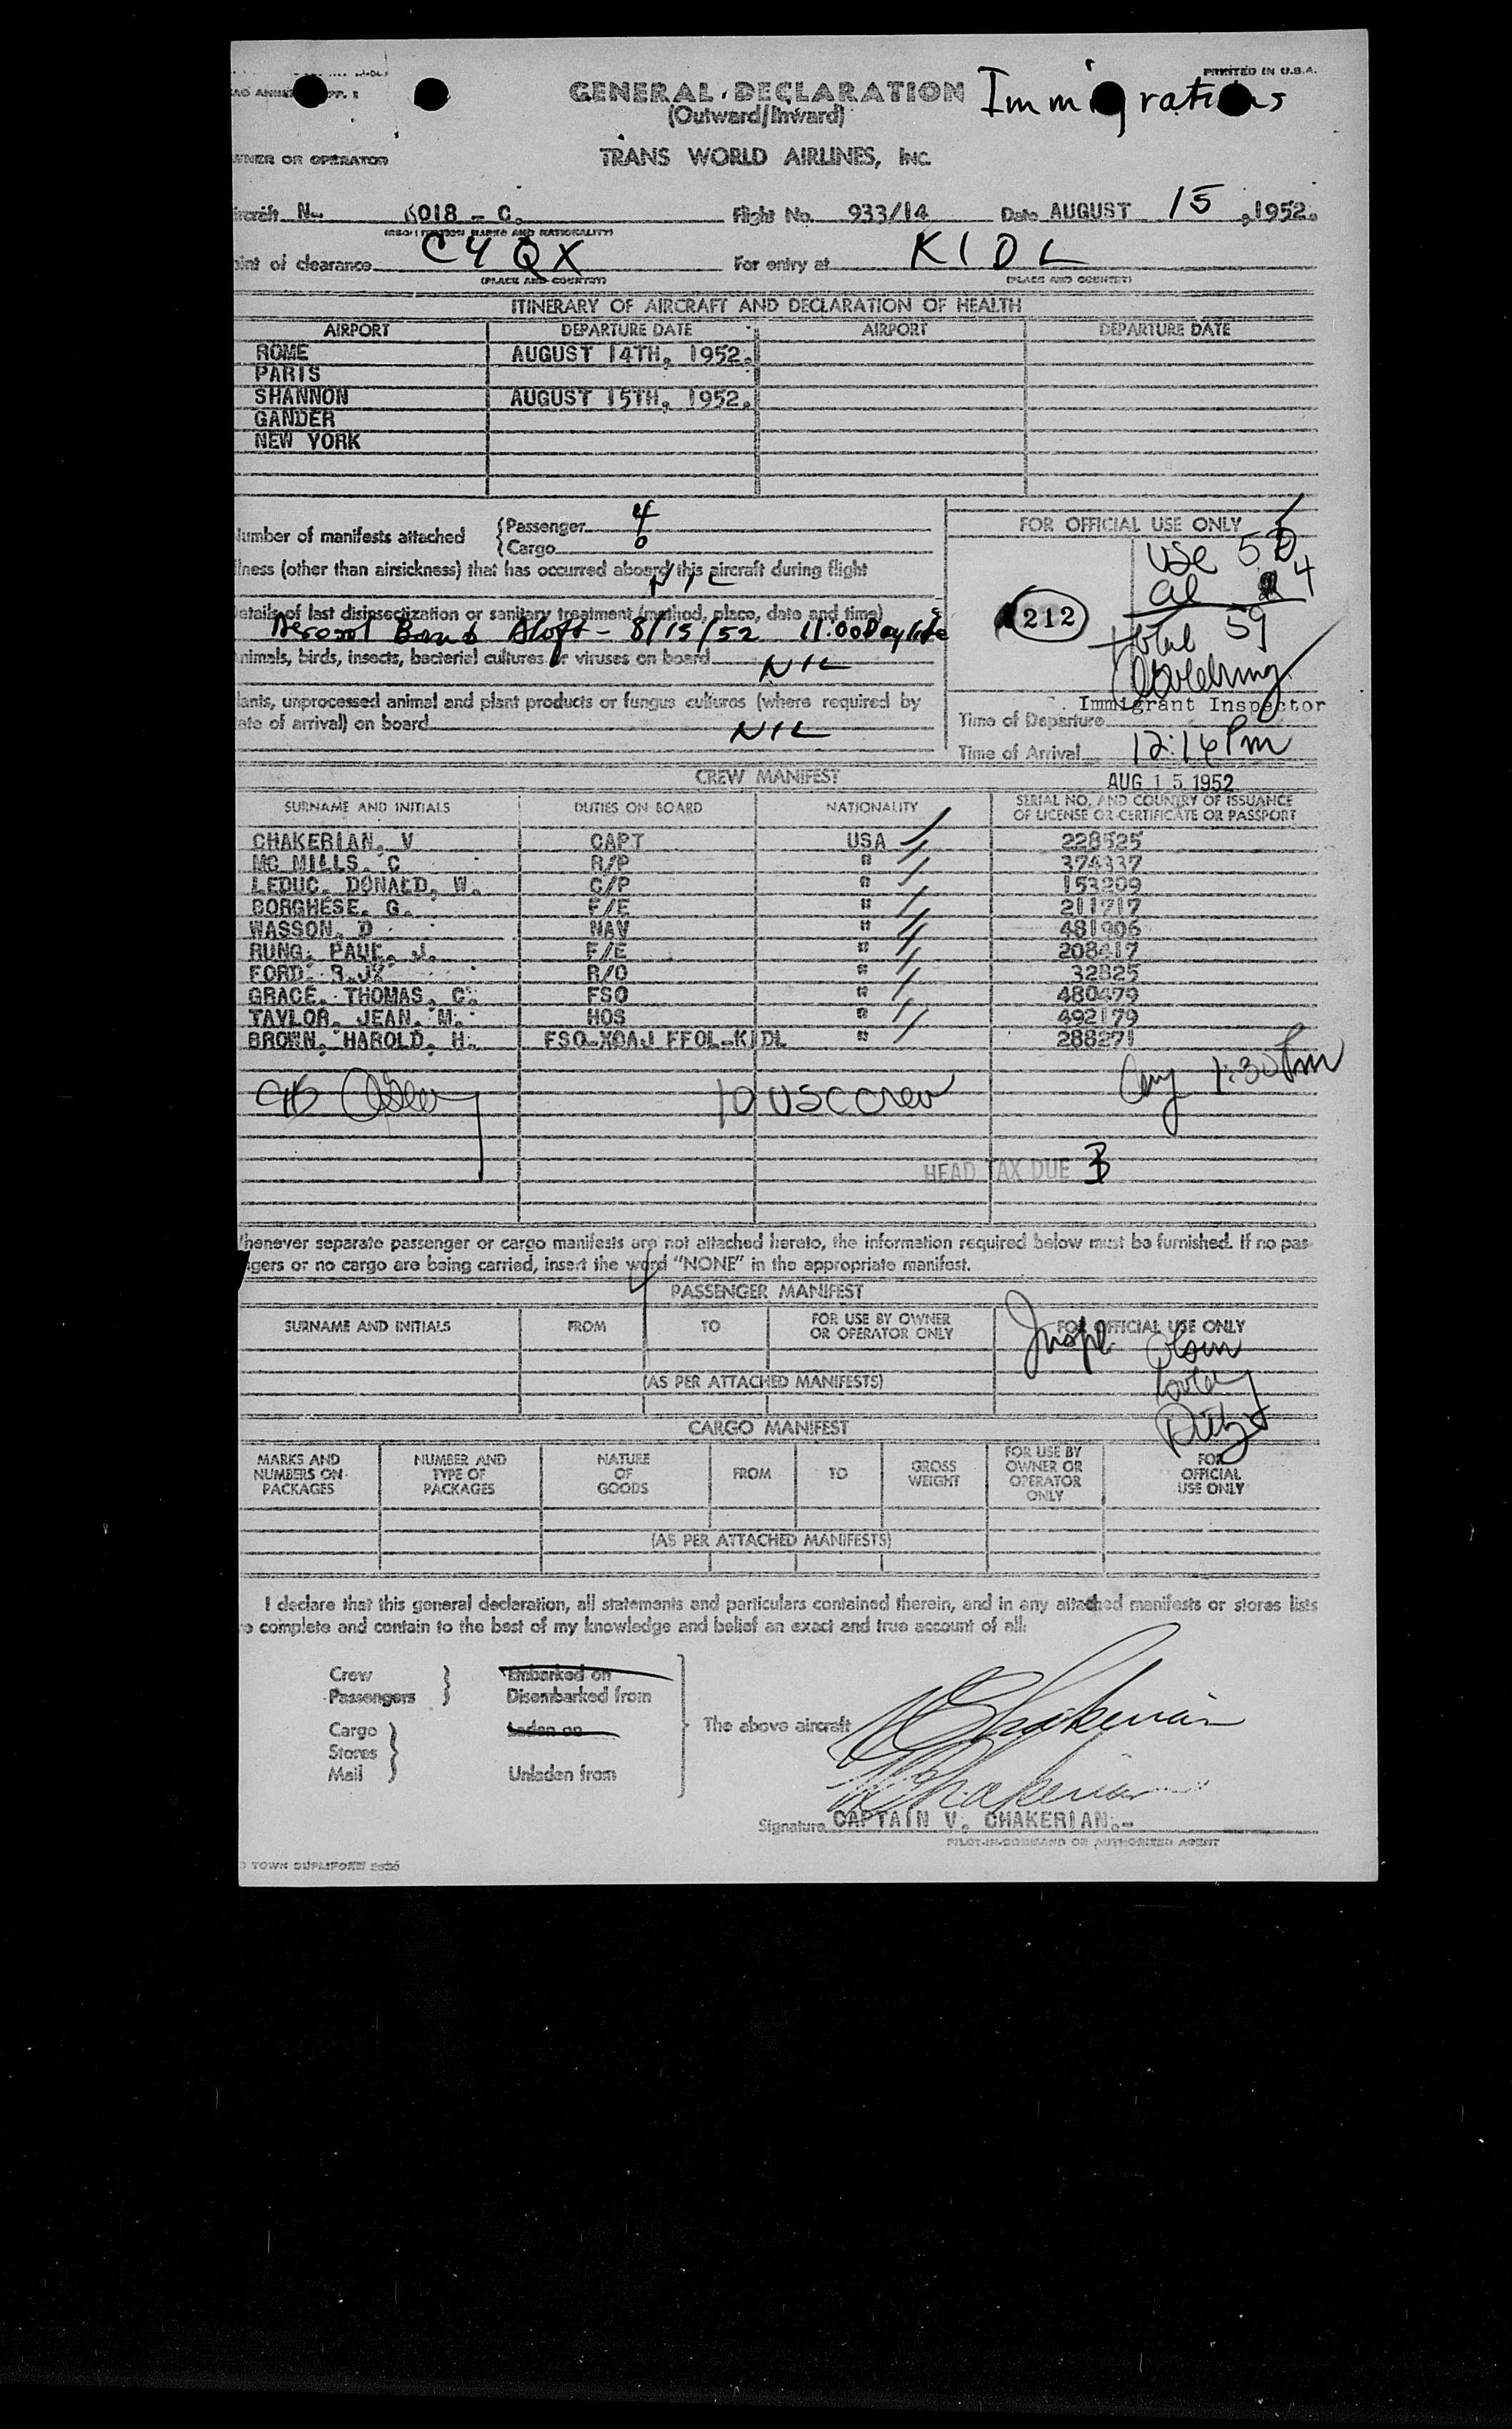 PRINTED IN U.S.A.
GENERAL DECLARATION
Immigrations
(Outward/Inward)
WNER OR OPERATOR
TRANS WORLD AIRLINES, INC.
ircraft N- 6018 - C. Flight No. 933/14 Date AUGUST 15, 1952.
(REGISTRATION MARKS AND NATIONALITY)
int of clearance CYQX For entry at KIDL
(PLACE AND COUNTRY) (PLACE AND COUNTRY)
ITINERARY OF AIRCRAFT AND DECLARATION OF HEALTH
AIRPORT DEPARTURE DATE AIRPORT DEPARTURE DATE
ROME AUGUST 14TH, 1952.
PARIS
SHANNON AUGUST 15TH, 1952.
GANDER
NEW YORK
umber of manifests attached
Passenger 4
Cargo 0
lness (other than airsickness) that has occurred aboard this aircraft during flight
NIL
etails of last disinsectization or sanitary treatment (method, place, date and time)
Aerosol Bomb Aloft - 8/15/52 11:00
nimals, birds, insects, bacterial cultures or viruses on board NIL
lants, unprocessed animal and plant products or fungus cultures (where required by
ate of arrival) on board NIL
FOR OFFICIAL USE ONLY
USC 5
al 4
212
Total 59
Immigrant Inspector
Time of Departure
Time of Arrival 12:16 Pm
AUG 15 1952
CREW MANIFEST
SURNAME AND INITIALS DUTIES ON BOARD NATIONALITY SERIAL NO. AND COUNTRY OF ISSUANCE
OF LICENSE OR CERTIFICATE OR PASSPORT
CHAKERIAN, V CAPT USA 228525
MC MILLS, C R/P " 374337
LEDUC, DONALD, W. C/P " 153209
BORGHESE, G. F/E " 211717
WASSON, D NAV " 481906
RUNG, PAUL, J. F/E " 208417
FORD, R/O " 32825
GRACE, THOMAS, C. FSO " 480479
TAYLOR, JEAN, M. HOS " 492179
BROWN, HAROLD, H. FSO-XOAJ FFOL-KIDL " 288271
1:30 Pm
10 USC crew
HEAD TAX DUE
Whenever separate passenger or cargo manifests are not attached hereto, the information required below must be furnished. If no pas-
gers or no cargo are being carried, insert the word "NONE" in the appropriate manifest.
4
PASSENGER MANIFEST
SURNAME AND INITIALS FROM TO FOR USE BY OWNER
OR OPERATOR ONLY FOR OFFICIAL USE ONLY
Olsen
(AS PER ATTACHED MANIFESTS)
CARGO MANIFEST
MARKS AND
NUMBERS ON
PACKAGES
NUMBER AND
TYPE OF
PACKAGES
NATURE
OF
GOODS
FROM
TO
GROSS
WEIGHT
FOR USE BY
OWNER OR
OPERATOR
ONLY
FOR
OFFICIAL
USE ONLY
(AS PER ATTACHED MANIFESTS)
I declare that this general declaration, all statements and particulars contained therein, and in any attached manifests or stores lists
e complete and contain to the best of my knowledge and belief an exact and true account of all:
Crew
Passengers
Embarked on
Disembarked from
Cargo
Stores
Mail
Laden on
Unladen from
The above aircraft
V Chakerian
V Chakerian
Signature CAPTAIN V. CHAKERIAN.-
PILOT-IN-COMMAND OR AUTHORIZED AGENT
TOWN DUPLIFORM